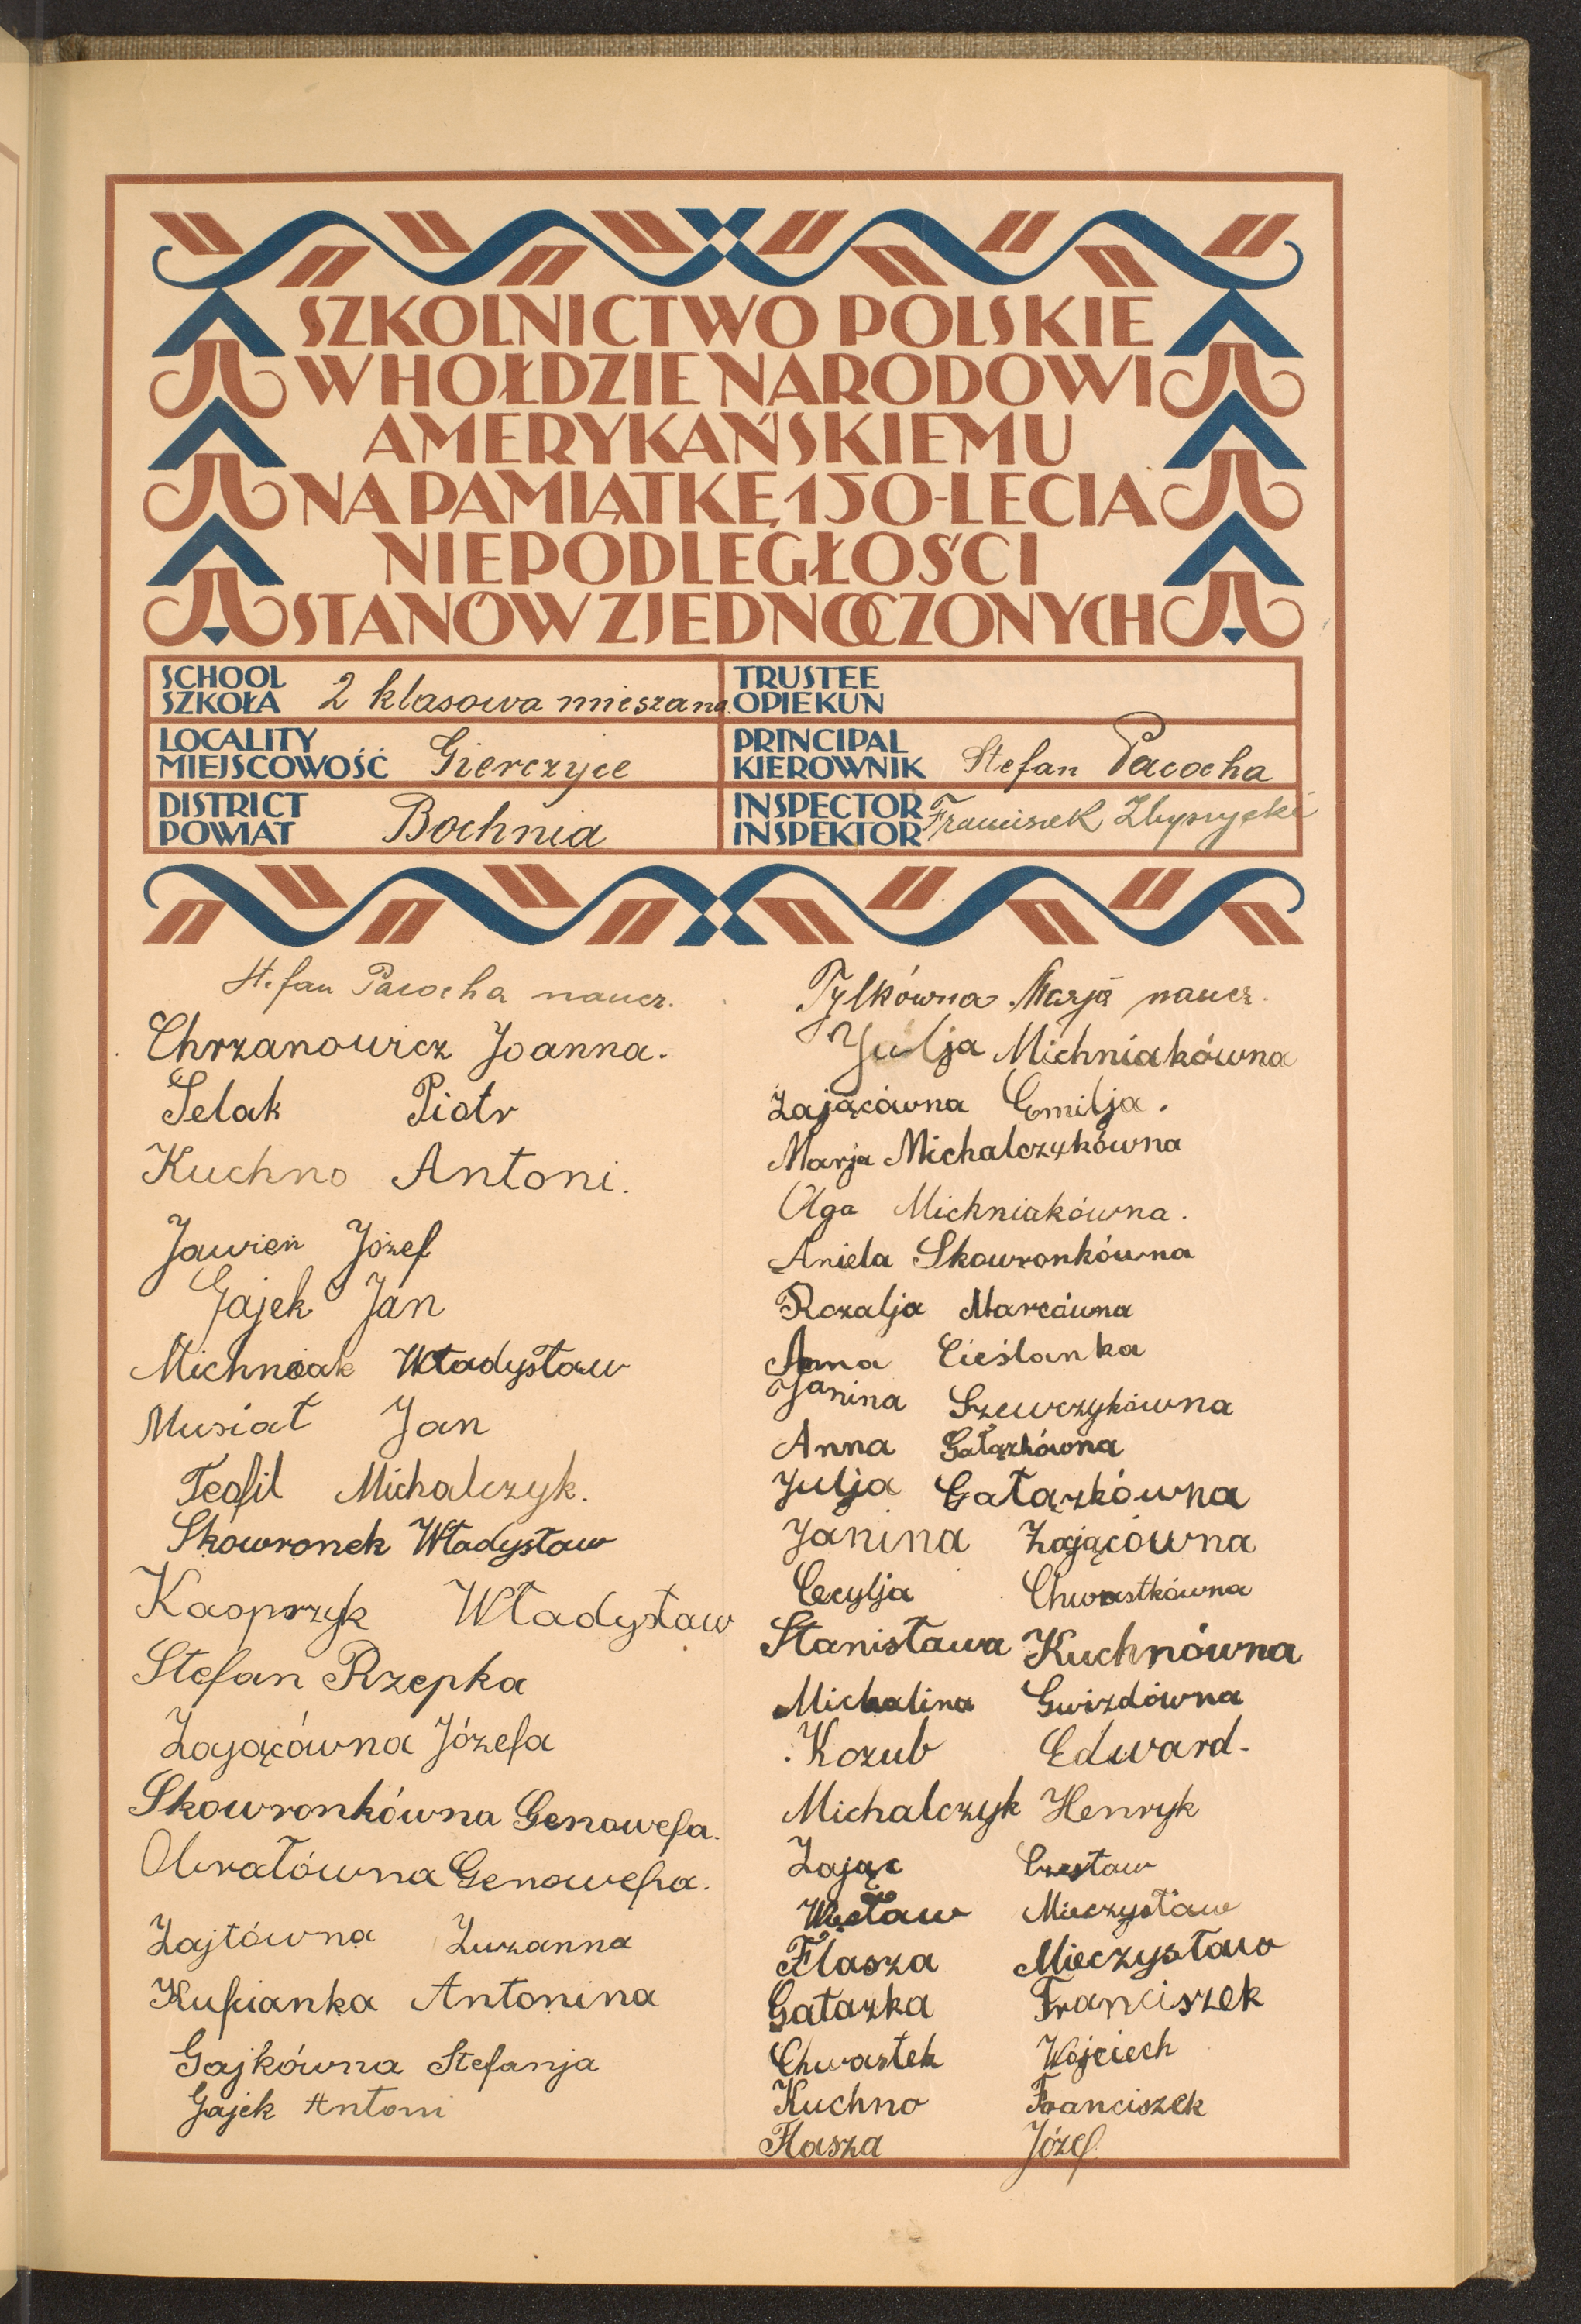 SZKOLNICTWO POLSKIE
W HOŁDZIE NARODOWI
AMERYKAŃSKIEMU
NA PAMIĄTKĘ 150-LECIA
NIEPODLEGŁOŚCI
STANÓW ZJEDNOCZONYCH
SCHOOL
SZKOŁA 2 klasowa mieszana.
TRUSTEE
OPIEKUN
LOCALITY
MIEJSCOWOŚĆ Gierczyce
PRINCIPAL
KIEROWNIK Stefan Pacocha
DISTRICT
POWIAT Bochnia
INSPECTOR
INSPEKTOR Franciszek
Stefan Pacocha naucz.
Chrzanowicz Joanna.
Selak Piotr
Kuchno Antoni.
Jawień Józef
Gajek Jan
Michniak Władysław
Musiał Jan
Teofil Michalczyk.
Skowronek Władysław
Kasprzyk Władysław
Stefan Rzepka
Zającówna Józefa
Skowronkówna Genowefa.
Obratówna Genowefa.
Zajtówna Zuzanna
Kufcianka Antonina
Gajkówna Stefanja
Gajek Antoni
Tylkówna Marja naucz.
Julja Michniakówna
Zającówna Emilja.
Marja Michalczykówna
Olga Michniakówna.
Aniela Skowronkówna
Rozalja Marcówna
Anna Cieślanka
Janina Szewczykówna
Anna Gałązkówna
Julja Gałązkówna
Janina Zającówna
Cecylja Chwastkówna
Stanisława Kuchnówna
Michalina Gwizdówna
Kozub Edward.
Michalczyk Henryk
Zając Czesław
Więcław Mieczysław
Flasza Mieczysław
Gałazka Franciszek
Chwastek Wojciech
Kuchno Franciszek
Flasza Józef.